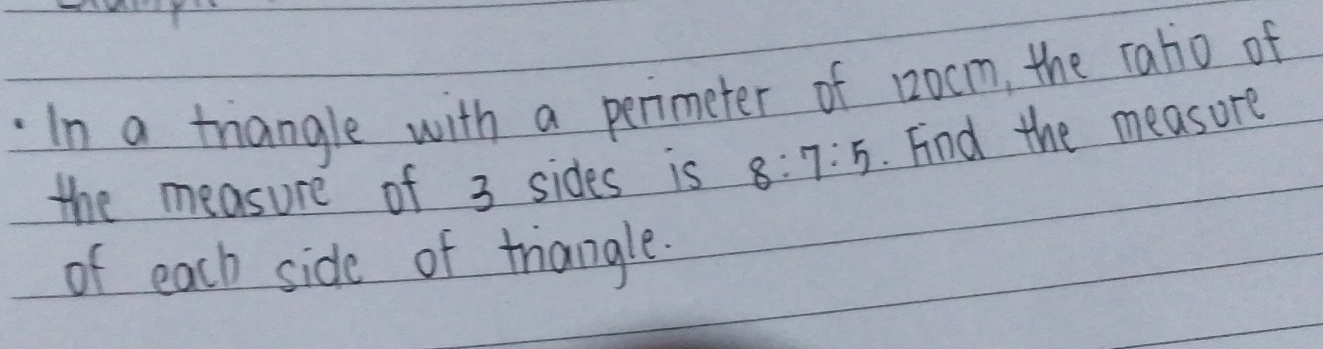 • In a triangle with a perimeter of 120cm, the ratio of
the measure of 3 sides is 8:7:5. Find the measure
of each side of triangle.